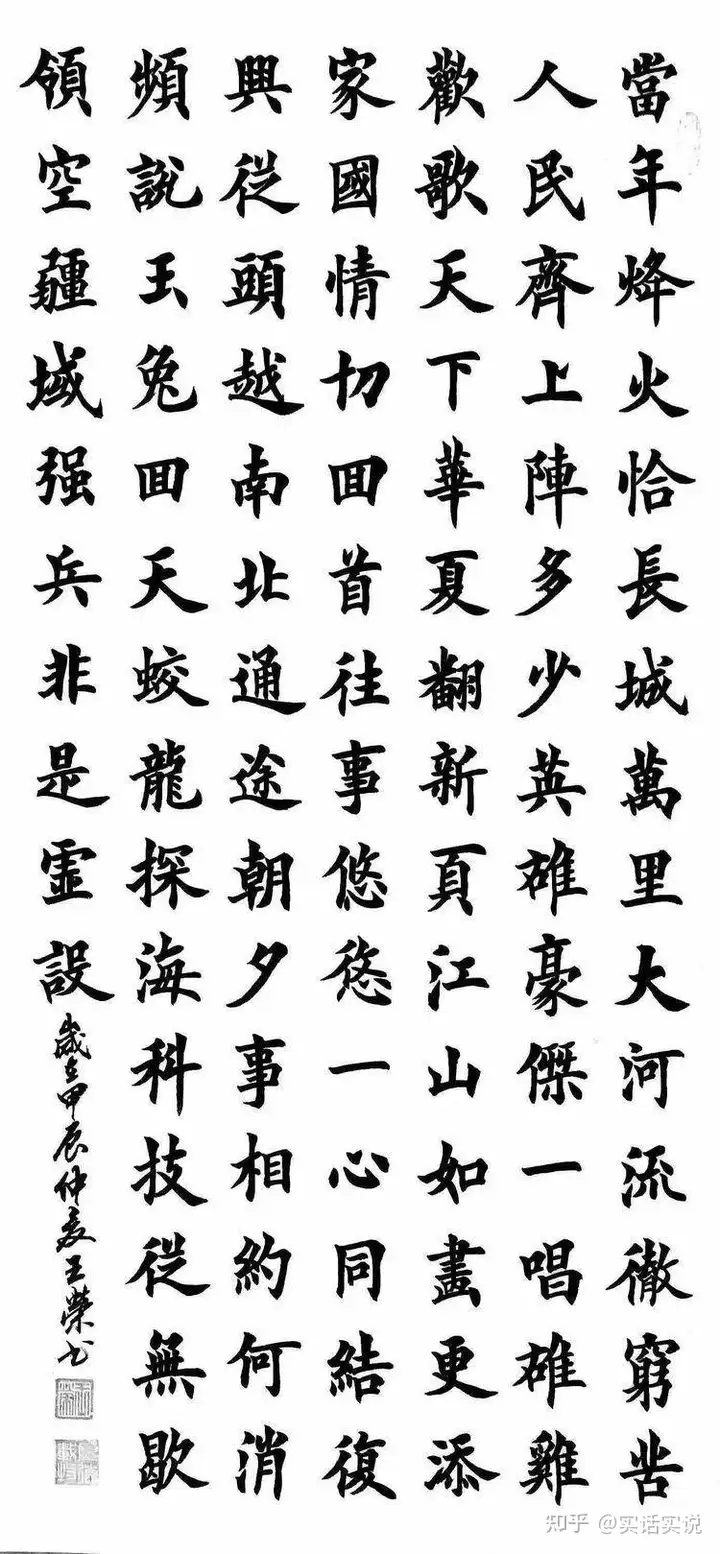 當年烽火恰長城萬里大河流徹窮苦
人民齊上陣多少英雄豪傑一唱雄雞
歡歌天下華夏翻新頁江山如畫更添
家國情切回首往事悠悠一心同結復
興從頭越南北通途朝夕事相約何消
頻說玉兔回天蛟龍探海科技從無歇
領空疆域強兵非是虛設
歲在甲辰仲夏王榮書
知乎 @实话实说